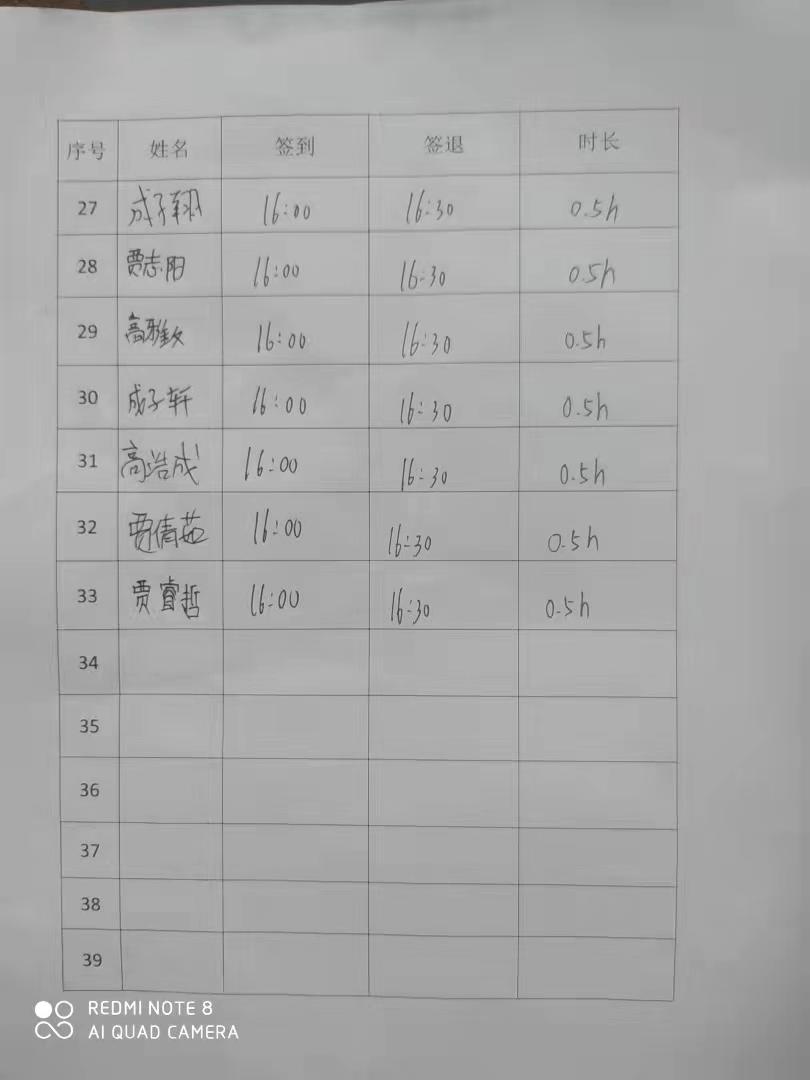 序号 姓名 签到 签退 时长
27 成子翔 16:00 16:30 0.5h
28 贾志阳 16:00 16:30 0.5h
29 高雅 16:00 16:30 0.5h
30 成子轩 16:00 16:30 0.5h
31 高浩成 16:00 16:30 0.5h
32 贾倩茹 16:00 16:30 0.5h
33 贾睿哲 16:00 16:30 0.5h
34
35
36
37
38
39
REDMI NOTE 8
AI QUAD CAMERA